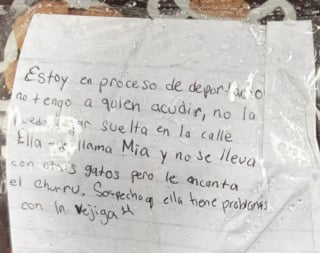 Estoy en proceso de deportacio
no tengo a quien acudir, no la
puedo dejar suelta en la calle
Ella se llama Mia y no se lleva
con otros gatos pero le encanta
el churru. Sospecho q ella tiene problemas
con la vejiga